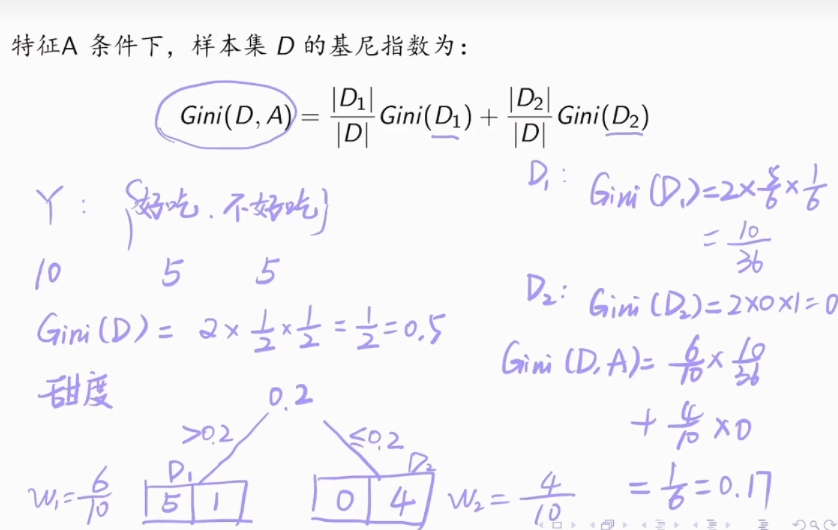 特征A 条件下，样本集 D 的基尼指数为：
Gini(D, A) = |D₁|/|D| Gini(D₁) + |D₂|/|D| Gini(D₂)
Y : {好吃. 不好吃}
10 5 5
Gini(D) = 2 × 1/2 × 1/2 = 1/2 = 0.5
甜度 0.2
>0.2 ≤0.2
W₁ = 6/10 D₁ 5 1
D₂ 0 4 W₂ = 4/10
D₁: Gini(D₁) = 2 × 5/6 × 1/6
= 10/36
D₂: Gini(D₂) = 2×0×1 = 0
Gini(D,A) = 6/10 × 10/36
+ 4/10 × 0
= 1/6 = 0.17